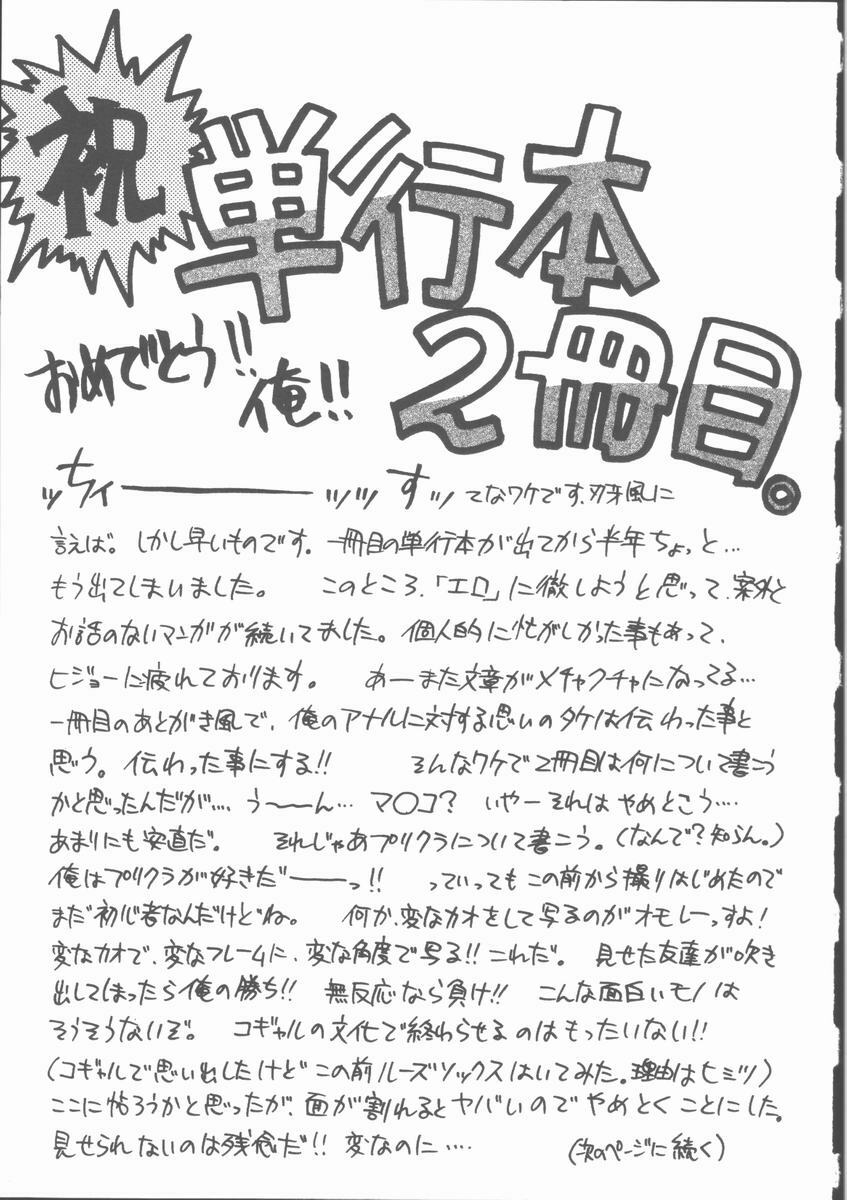 祝
単行本
2冊目。
おめでとう!! 俺!!
ッちィーーッッすッ てなワケです、刃牙風に
言えば。 しかし早いものです。 一冊目の単行本が出てから半年ちょっと…
もう出てしまいました。 このところ、「エロ」に徹しようと思って、案外と
お話のないマンガが続いてました。個人的に忙がしかった事もあって、
ヒジョーに疲れております。 あーまた文章がメチャクチャになってる…
一冊目のあとがき風で、俺のアナルに対する思いのタケは伝わった事と
思う。伝わった事にする!! そんなワケで2冊目は何について書こう
かと思ったんだが…. う〜〜ん… マ○コ? いやーそれはやめとこう….
あまりにも安直だ。 それじゃあプリクラについて書こう。(なんで?知らん。)
俺はプリクラが好きだ――っ!! っていってもこの前から撮りはじめたので
まだ初心者なんだけどね。 何か、変なカオをして写るのがオモレーっすよ!
変なカオで、変なフレームに、変な角度で写る!! これだ。 見せた友達が吹き
出してしまったら俺の勝ち!! 無反応なら負け!! こんな面白いモノは
そうそうないぞ。 コギャルの文化で終わらせるのはもったいない!!
(コギャルで思い出したけどこの前ルーズソックスはいてみた。理由はヒミツ)
ここに帖ろうかと思ったが、面が割れるとヤバいのでやめとくことにした。
見せられないのは残念だ!! 変なのに….
(次のページに続く)